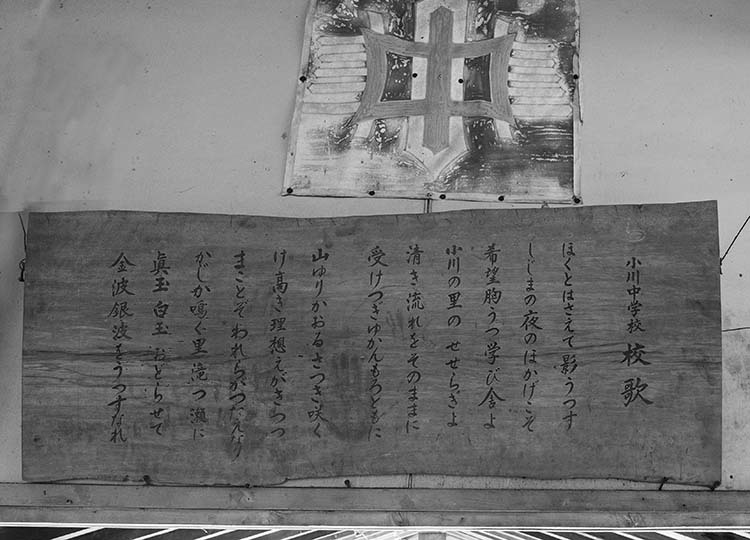 小川中学校 校歌
ほくとはさえて影うつす
しじまの夜のほかげこそ
希望胸うつ学び舎よ
小川の里の せせらぎよ
清き流れをそのままに
受けつぎゆかんもろともに
山ゆりかおるさつき咲く
け高き理想えがきつつ
まことぞわれらがつたえなり
かじか鳴く里滝つ瀬に
真玉白玉 おどらせて
金波銀波をうつすなれ